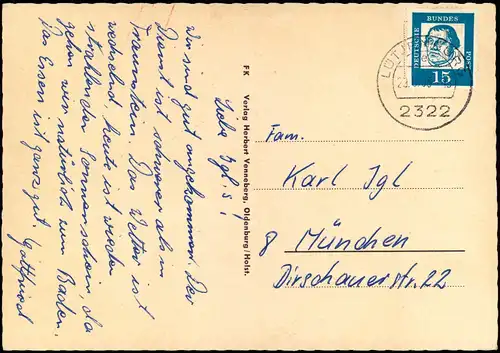 Liebe Igl's!
Wir sind gut angekommen. Der
Dienst ist schwerer als in
Traunstein. Das Wetter ist
wechselnd, heute ist wieder
strahlender Sonnenschein, da
gehn wir natürlich zum Baden.
Das Essen ist ganz gut. Gottfried
FK Verlag Herbert Venneberg, Oldenburg/Holst.
DEUTSCHE BUNDES POST
15
2322
Fam.
Karl Igl
8 München
Dirschauerstr. 22